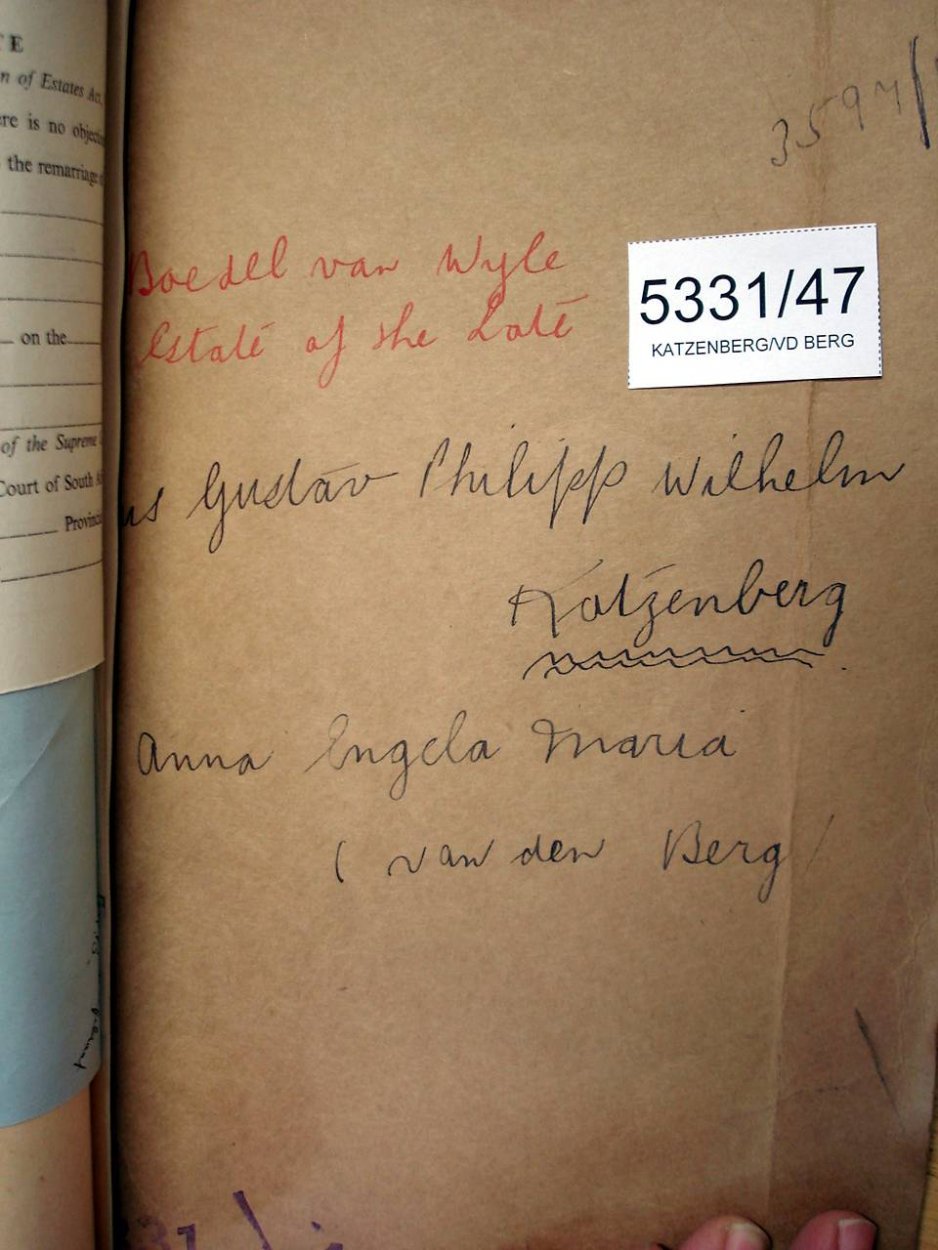 TE
n of Estates Act,
ere is no objection
the remarriage
on the
of the Supreme
Court of South
Provincial
3594/
Boedel van Wyle
Estate of the Late
5331/47
KATZENBERG/VD BERG
us Gustav Philipp Wilhelm
Katzenberg
Anna Engela Maria
(van den Berg)